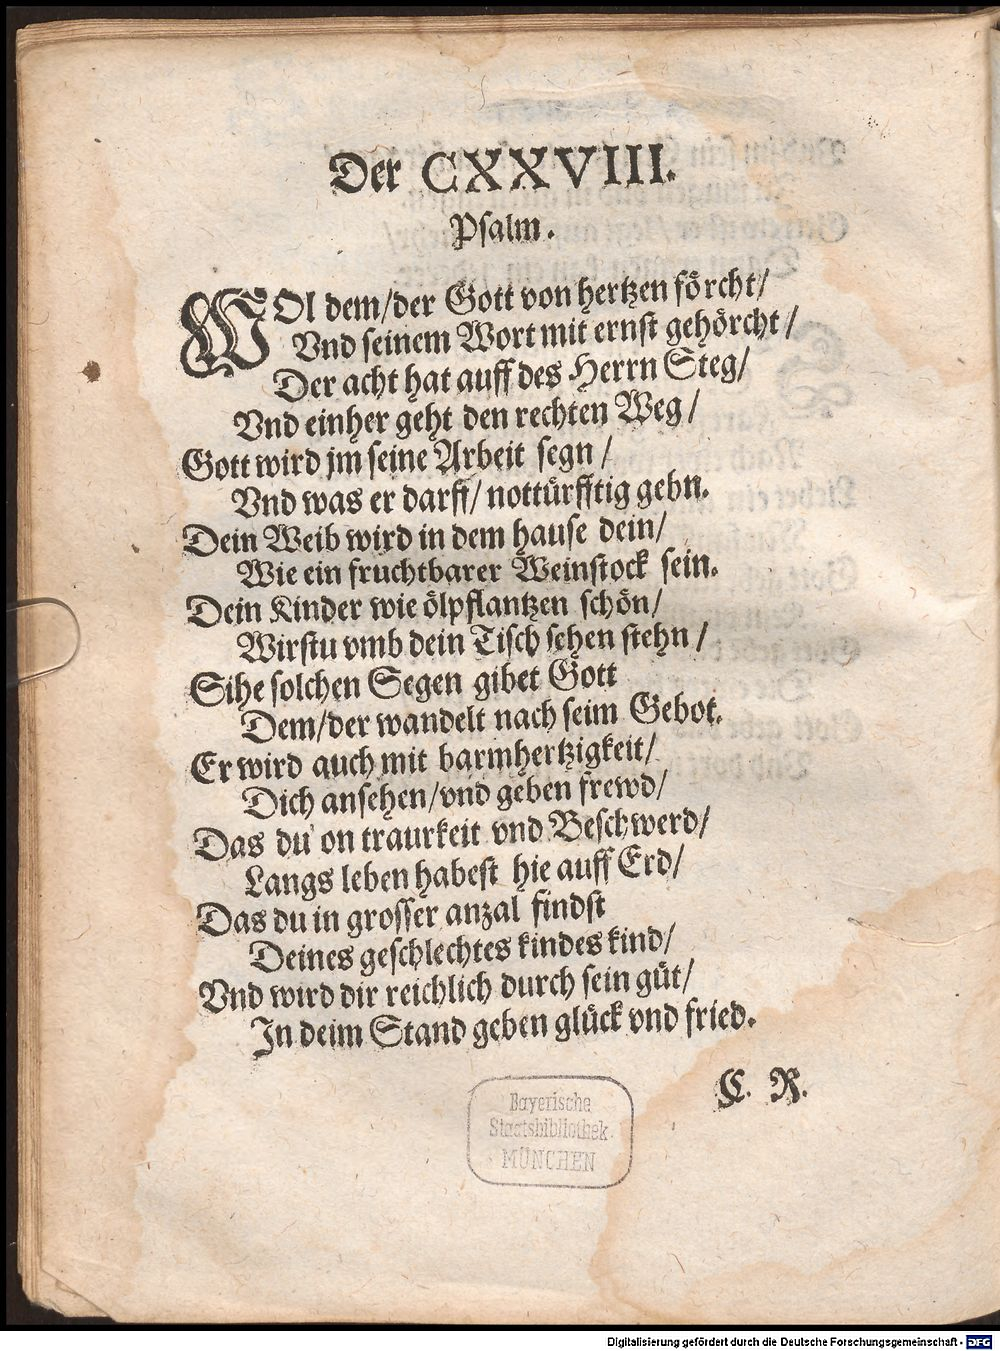 Der CXXVIII.
Psalm.
WOl dem/der Gott von hertzen förcht/
Vnd seinem Wort mit ernst gehörcht/
Der acht hat auff des Herrn Steg/
Vnd einher geht den rechten Weg/
Gott wird jm seine Arbeit segn/
Vnd was er darff/ nottürfftig gebn.
Dein Weib wird in dem hause dein/
Wie ein fruchtbarer Weinstock sein.
Dein Kinder wie ölpflantzen schön/
Wirstu vmb dein Tisch sehen stehn/
Sihe solchen Segen gibet Gott
Dem/der wandelt nach seim Gebot.
Er wird auch mit barmhertzigkeit/
Dich ansehen/vnd geben frewd/
Das du on traurkeit vnd Beschwerd/
Langs leben habest hie auff Erd/
Das du in grosser anzal findst
Deines geschlechtes kindes kind/
Vnd wird dir reichlich durch sein güt/
In deim Stand geben glück vnd fried.
C. R.
Bayerische
Staatsbibliothek
MÜNCHEN
Digitalisierung gefördert durch die Deutsche Forschungsgemeinschaft - DFG